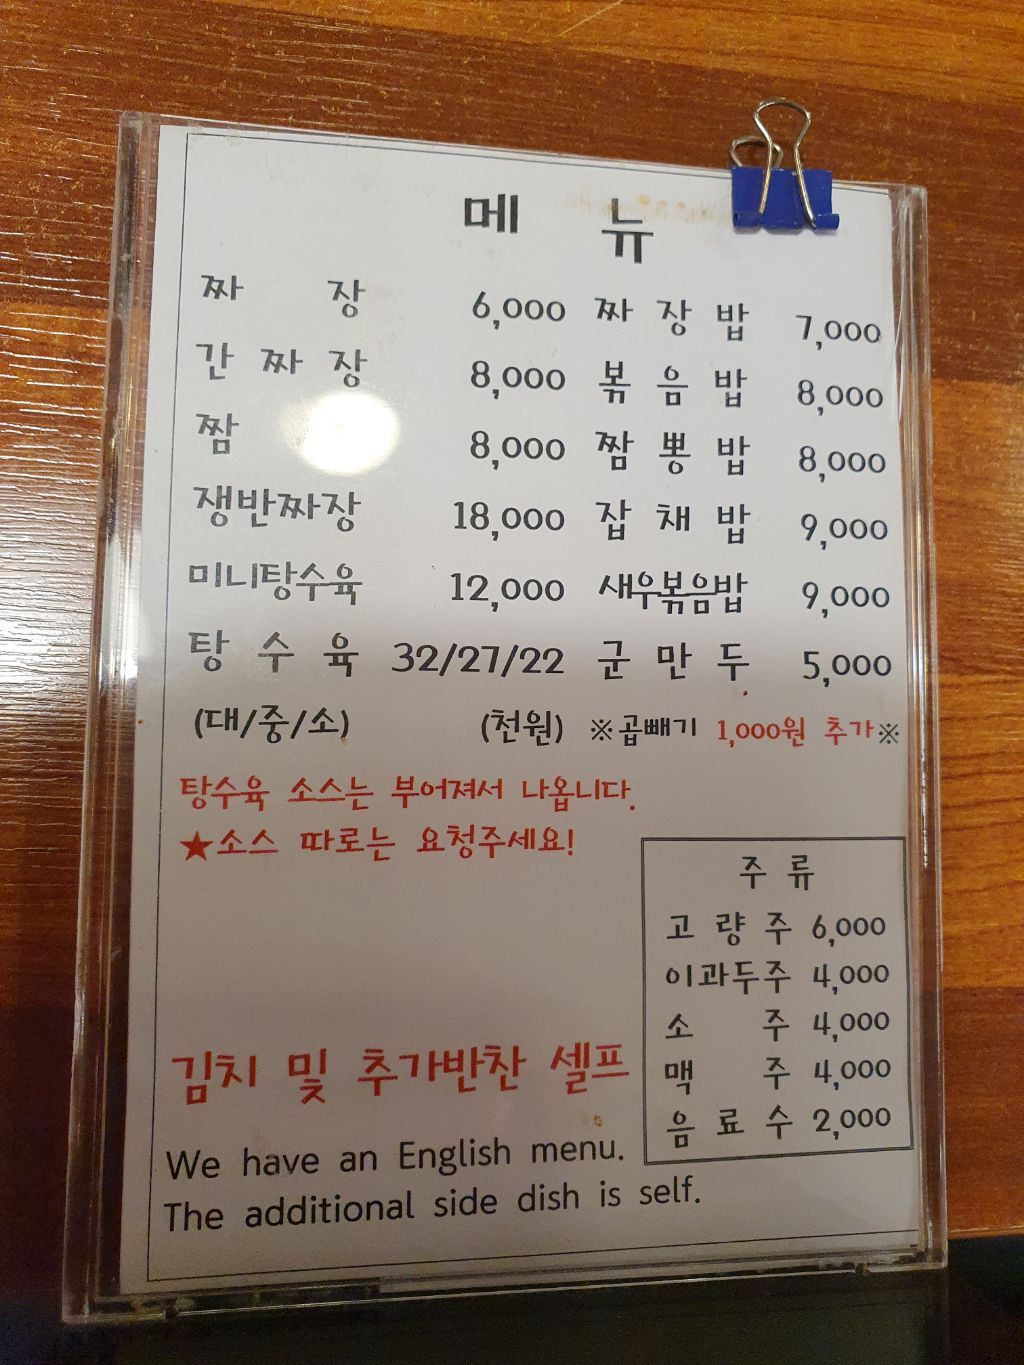 메 뉴
짜 장 6,000 짜 장 밥 7,000
간 짜 장 8,000 볶 음 밥 8,000
짬 8,000 짬 뽕 밥 8,000
쟁반짜장 18,000 잡 채 밥 9,000
미니탕수육 12,000 새우볶음밥 9,000
탕 수 육 32/27/22 군 만 두 5,000
(대/중/소) (천원) ※곱빼기 1,000원 추가※
탕수육 소스는 부어져서 나옵니다.
★소스 따로는 요청주세요!
주 류
고 량 주 6,000
이과두주 4,000
소 주 4,000
맥 주 4,000
음 료 수 2,000
김치 및 추가반찬 셀프
We have an English menu.
The additional side dish is self.